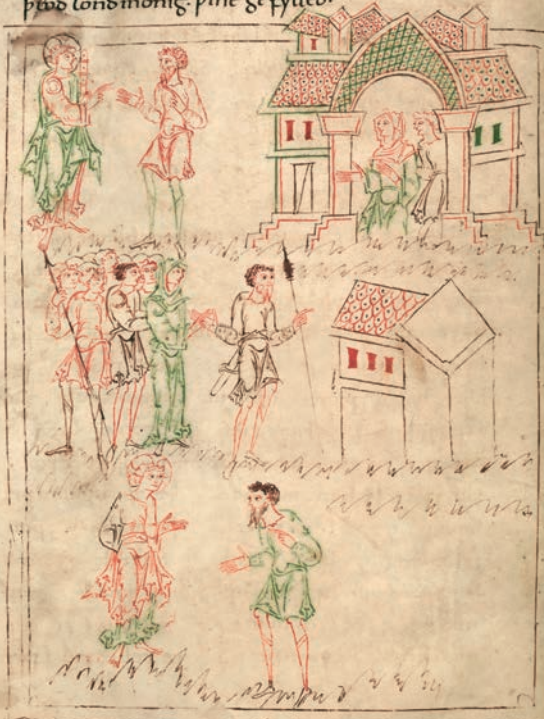 þeod lond monig. þine ge fylled.